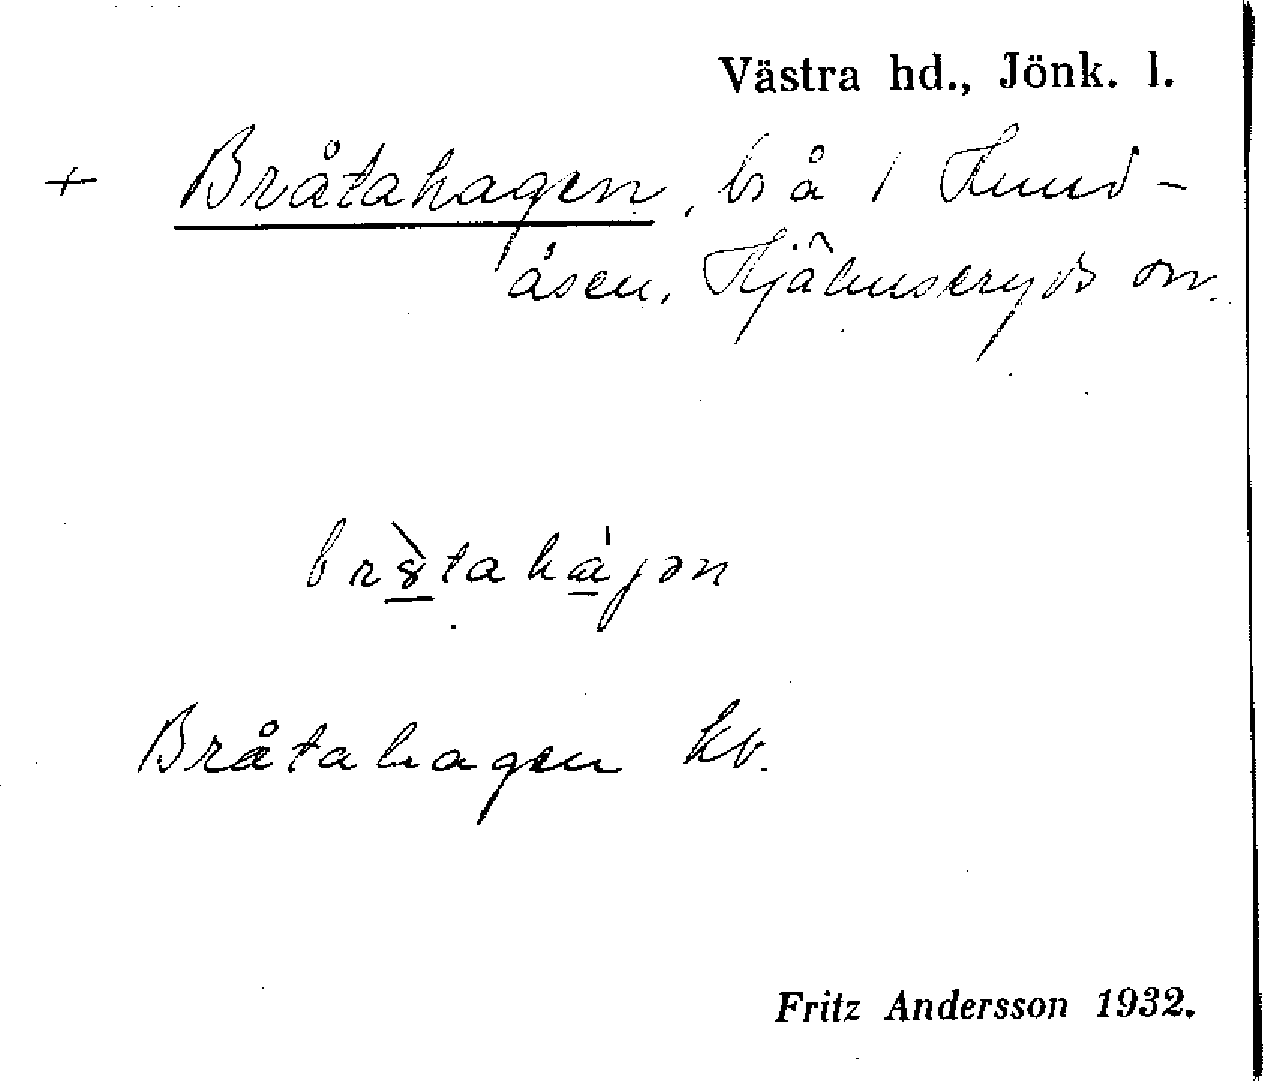 Västra hd., Jönk. l.
+ Bråtahagen, bå i Hund-
åsen, Hjälmseryds sn.
brȣ̀tahájən
Bråtahagen kv.
Fritz Andersson 1932.